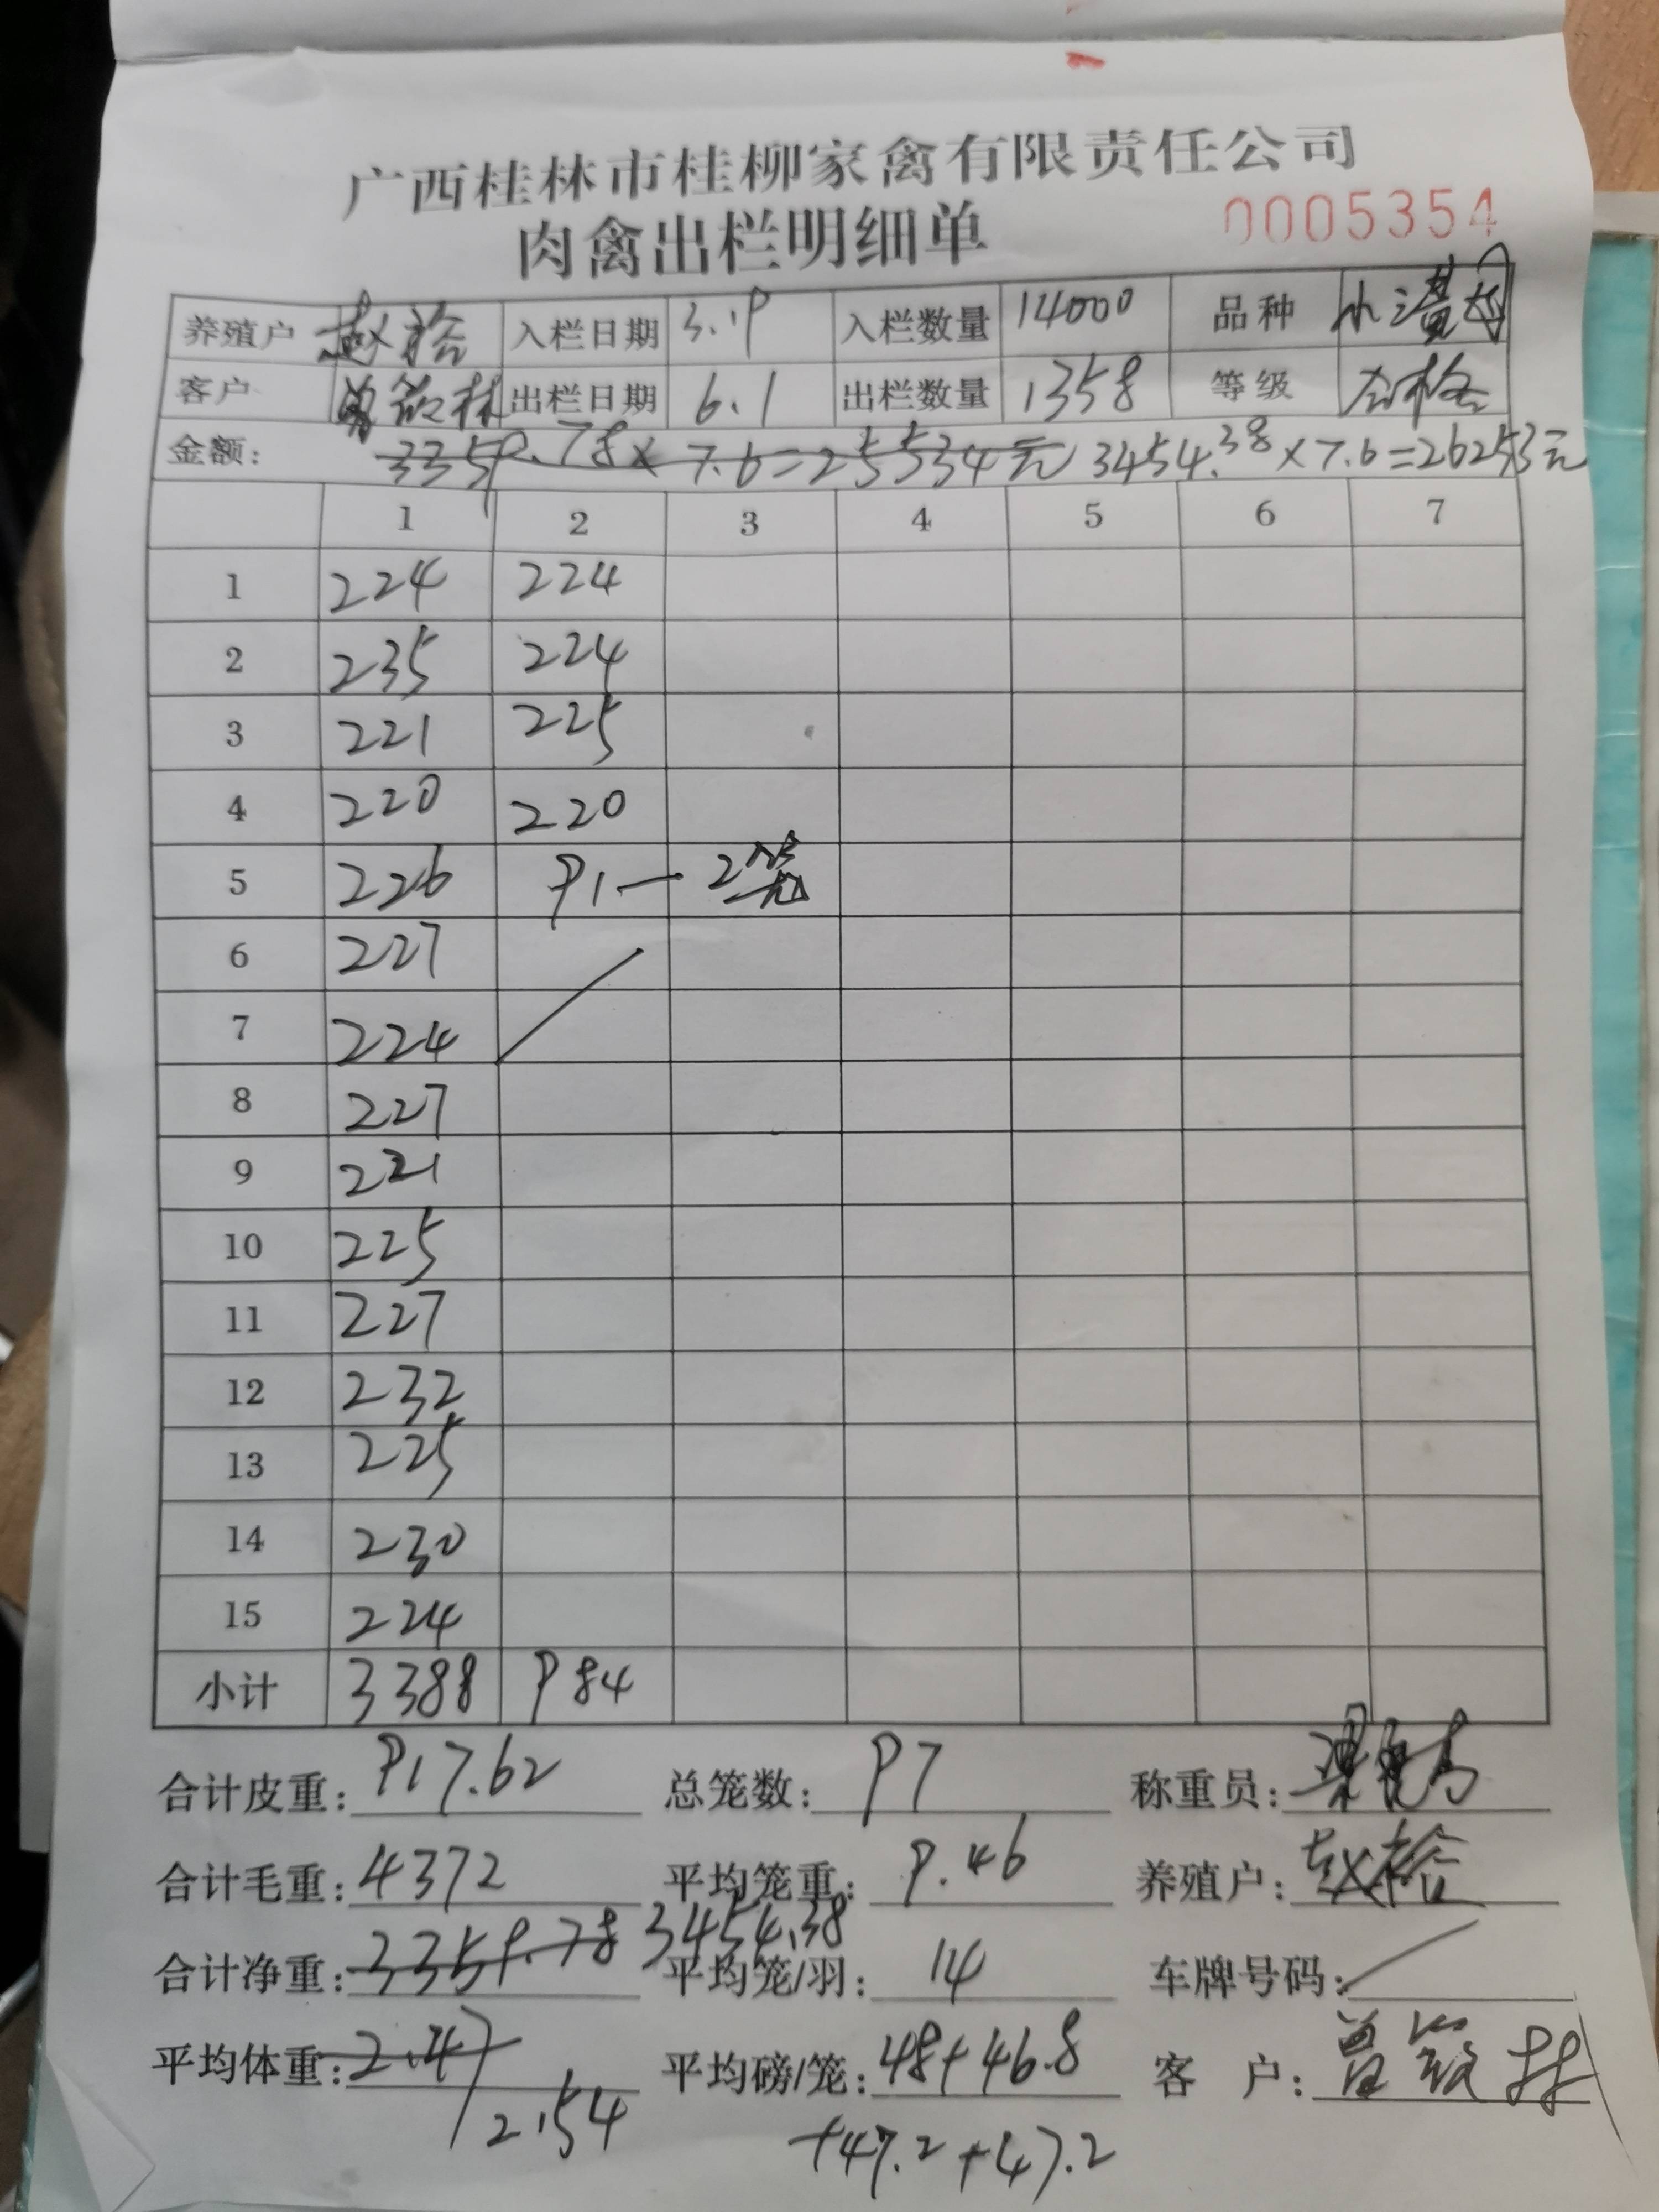 广西桂林市桂柳家禽有限责任公司
肉禽出栏明细单 0005354
养殖户 赵裕 入栏日期 3.19 入栏数量 14000 品种
客户 曾筱林 出栏日期 6.1 出栏数量 1358 等级 合格
金额: 3359.78×7.6=25534元 3454.38×7.6=26253元
1 2 3 4 5 6 7
1 224 224
2 235 224
3 221 225
4 220 220
5 226 91一2笼
6 227
7 224
8 227
9 221
10 225
11 227
12 232
13 225
14 230
15 224
小计 3388 984
合计皮重: 917.62 总笼数: 97 称重员:
合计毛重: 4372 平均笼重: 9.46 养殖户: 赵裕
合计净重: 3359.78 3454.38 平均笼/羽: 14 车牌号码:
平均体重: 2.47 平均磅/笼: 48+46.8 客 户: 曾筱林
2.54 +47.2+47.2